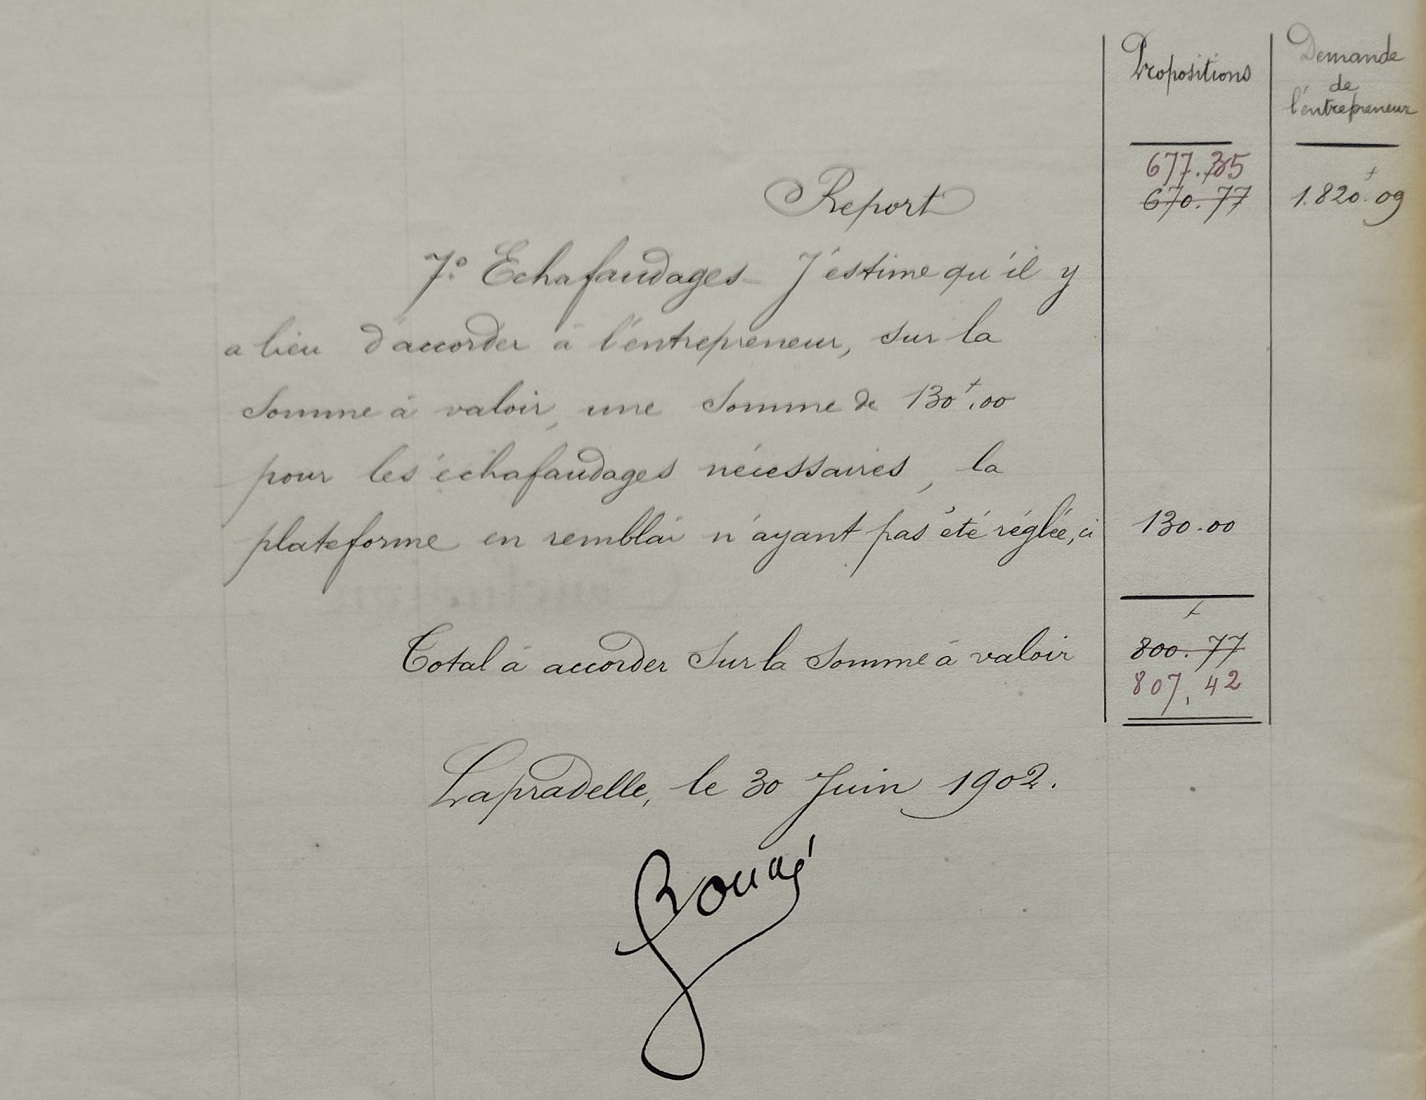 Propositions
Demande
de
l'entrepreneur
677.35
Report 670.77 1.820f.09
7.º Echafaudages – J'estime qu'il y
a lieu d'accorder à l'entrepreneur, sur la
somme à valoir, une somme de 130f.00
pour les échafaudages nécessaires, la
plateforme en remblai n'ayant pas été réglée, ci 130.00
Total à accorder sur la somme à valoir 800f.77
807,42
Lapradelle, le 30 Juin 1902.